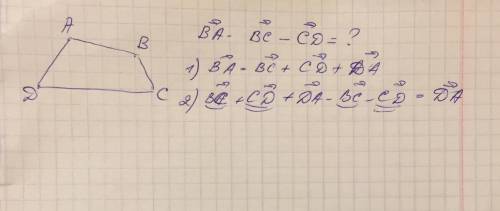 A
B
D
C
B⃗A⃗ - B⃗C⃗ - C⃗D⃗ = ?
1) B⃗A⃗ = B⃗C⃗ + C⃗D⃗ + D⃗A⃗
2) B⃗C⃗ + C⃗D⃗ + D⃗A⃗ - B⃗C⃗ - C⃗D⃗ = D⃗A⃗